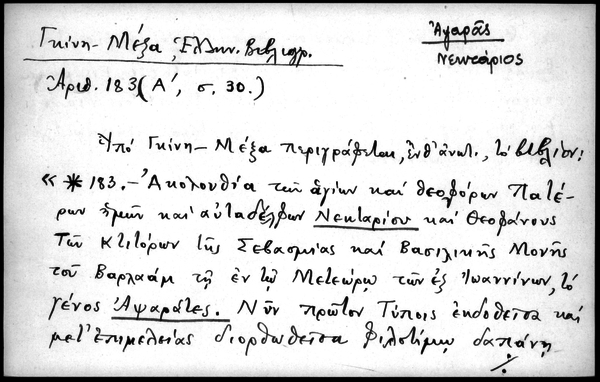 Γκίνη-Μέξα, Ἑλλην. Βιβλιογρ.
Ἀψαρᾶς
Νεκτάριος
Ἀριθ. 183 (Α´, σ. 30.)
Ὑπό Γκίνη-Μέξα περιγράφεται, ἐνθ᾽ἀνωτ., τό βιβλίον:
«*183.- Ἀκολουθία τῶν ἁγίων καί θεοφόρων Πατέ-
ρων ἡμῶν καί αὐταδέλφων Νεκταρίου καί Θεοφάνους
Τῶν κτιτόρων τῆς Σεβασμίας καί Βασιλικῆς Μονῆς
τοῦ Βαρλαάμ τῆς ἐν τῷ Μετεώρῳ τῶν ἐξ Ἰωαννίνων, τό
γένος Ἀψαράτες. Νῦν πρῶτον Τύποις ἐκδοθεῖσα καί
μετ᾽ ἐπιμελείας διορθωθεῖσα φιλοτίμῳ δαπάνῃ